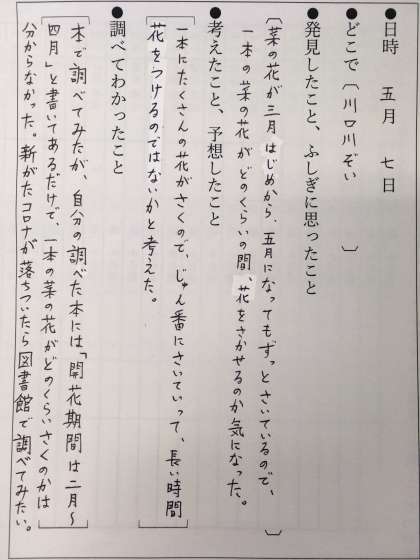 ●日時　五月　七日
●どこで〔川口川ぞい　　〕
●発見したこと、ふしぎに思ったこと
〔菜の花が三月はじめから、五月になってもずっとさいているので、
一本の菜の花がどのくらいの間、花をさかせるのか気になった。〕
●考えたこと、予想したこと
〔一本にたくさんの花がさくので、じゅん番にさいていって、長い時間
花をつけるのではないかと考えた。〕
●調べてわかったこと
〔本で調べてみたが、自分の調べた本には「開花期間は二月～
四月」と書いてあるだけで、一本の菜の花がどのくらいさくのかは〕
分からなかった。新がたコロナが落ちついたら図書館で調べてみたい。